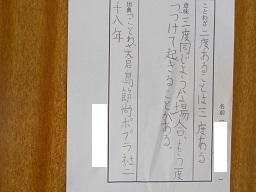 名前
ことわざ 二度あることは三度ある
意味 二度同じような場合、もう一度
つづけて起きることがある。
出典 ことわざ大君 島節尚 ポプラ社 二
十八年